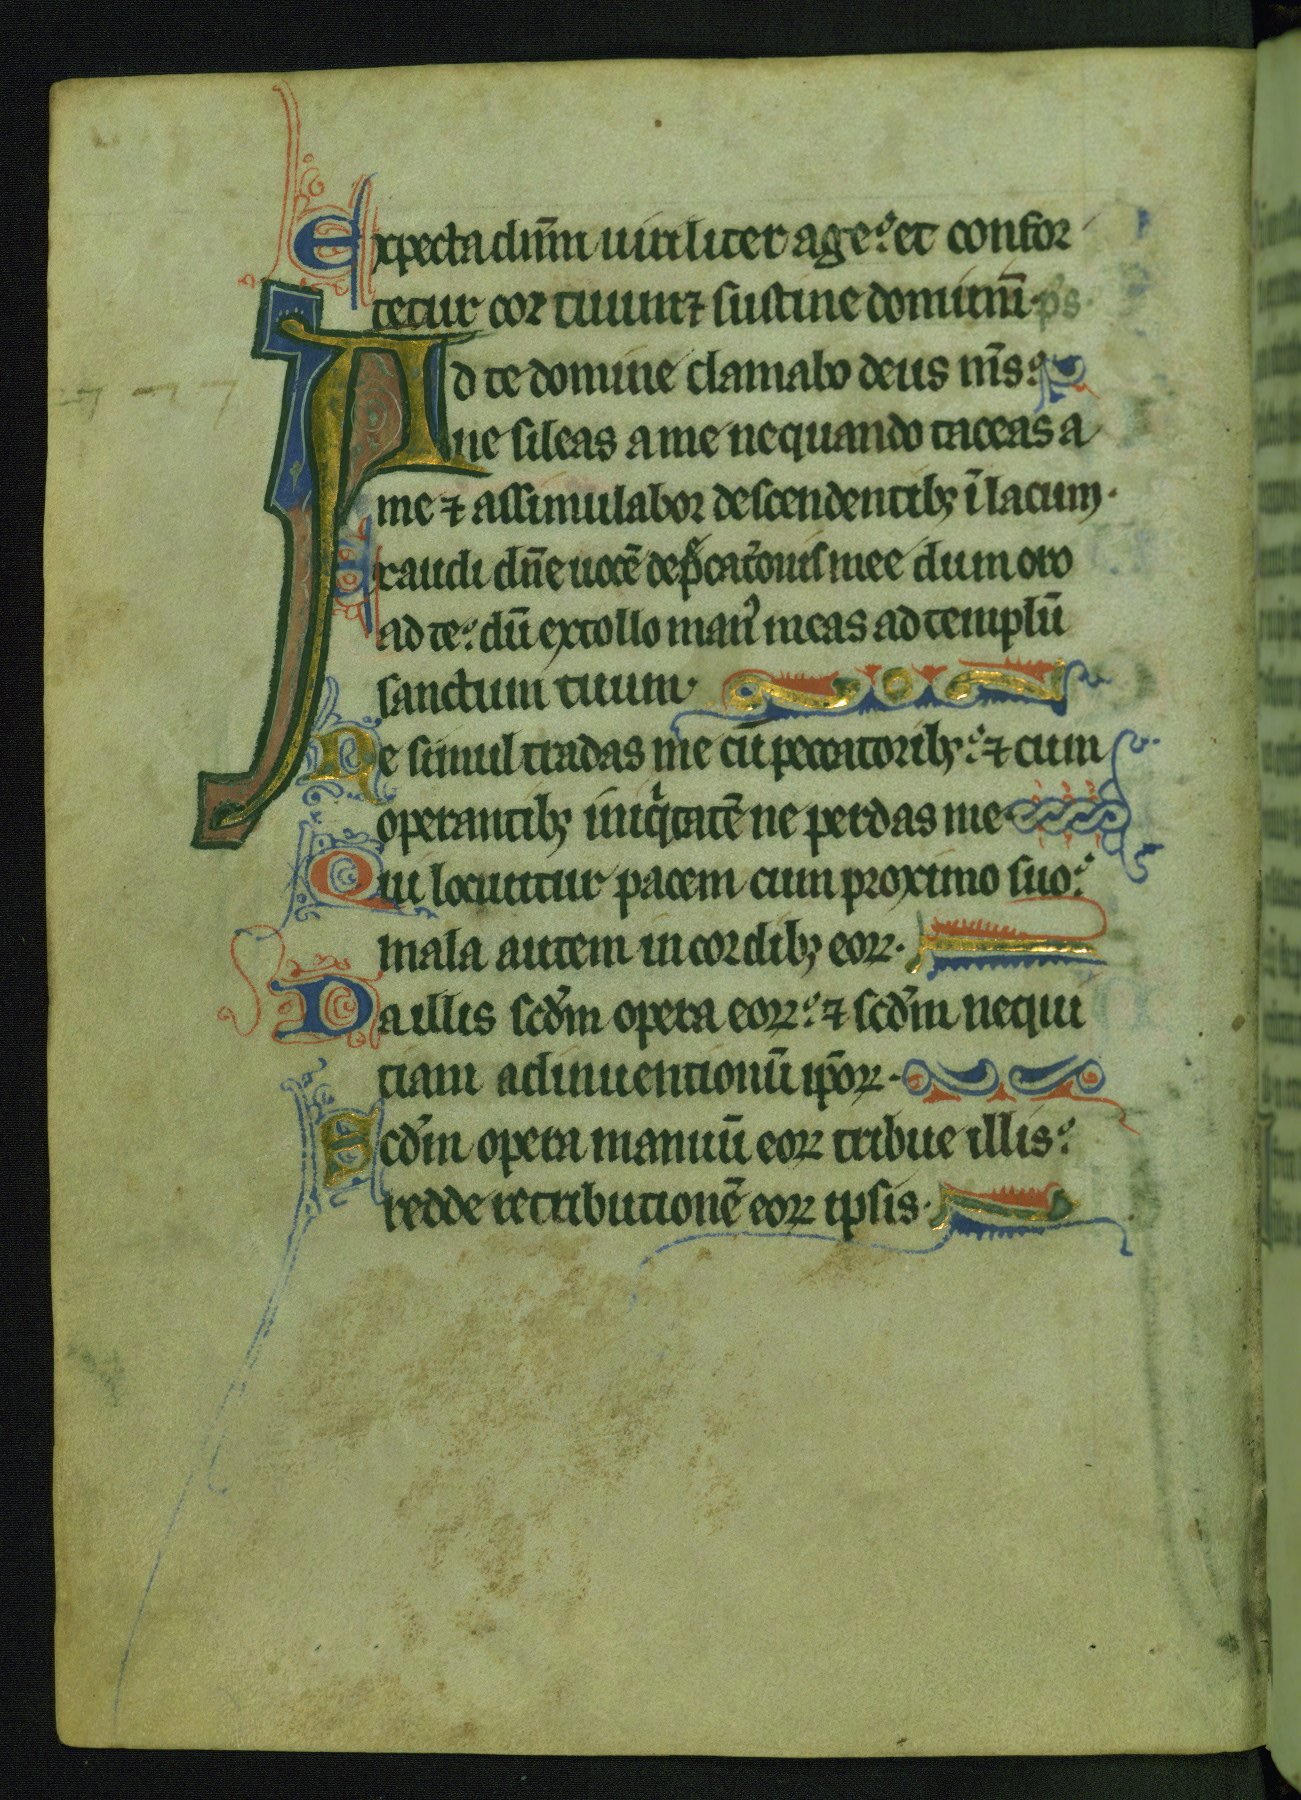 Expecta dnm̄ uiriliter age: et confor
tetur cor tuum ⁊ sustine dominū. ps.
Ad te domine clamabo deus m̄s:
ne sileas a me nequando taceas a
me ⁊ assimulabor descendentibꝫ ī lacum.
Exaudi dn̄e uocē dep̄catōnis mee dum oro
ad te: dū extollo man᷒ meas ad templū
sanctum tuum.
Ne simul tradas me cū peccatoribꝫ: ⁊ cum
operantibꝫ iniqͥtatē ne perdas me
Qui locuntur pacem cum proximo suo:
mala autem in cordibꝫ eoꝝ.
Da illis scd̄m opera eoꝝ: ⁊ scd̄m nequi
tiam adinuentionū ip̄oꝝ.
Scd̄m opera manuū eoꝝ tribue illis:
redde retributionē eoꝝ ipsis.